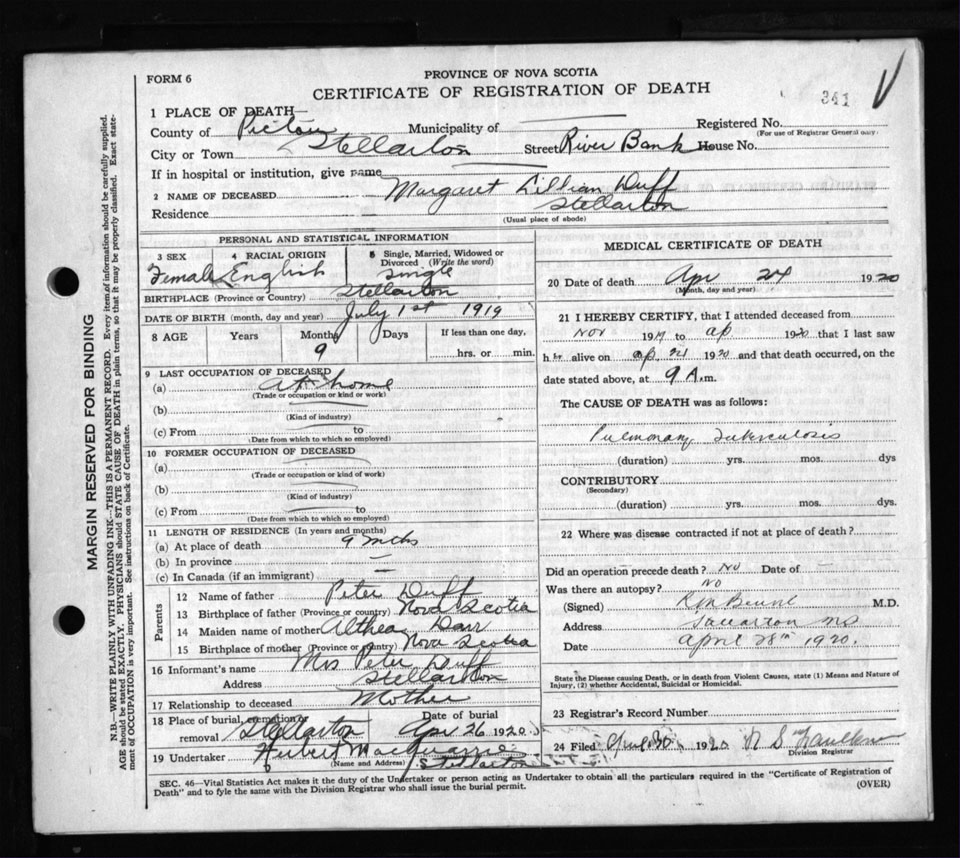 FORM 6
PROVINCE OF NOVA SCOTIA
CERTIFICATE OF REGISTRATION OF DEATH
341
1 PLACE OF DEATH—
County of Pictou Municipality of Registered No.
(For use of Registrar General only)
City or Town Stellarton Street River Bank House No.
If in hospital or institution, give name
2 NAME OF DECEASED Margaret Lillian Duff
Residence Stellarton
(Usual place of abode)
PERSONAL AND STATISTICAL INFORMATION
3 SEX 4 RACIAL ORIGIN 5 Single, Married, Widowed or Divorced (Write the word)
Female English Single
BIRTHPLACE (Province or Country) Stellarton
DATE OF BIRTH (month, day and year) July 1st 1919
8 AGE Years Months Days If less than one day,
9 hrs. or min.
9 LAST OCCUPATION OF DECEASED
(a) At home
(Trade or occupation or kind or work)
(b)
(Kind of industry)
(c) From to
(Date from which to which so employed)
10 FORMER OCCUPATION OF DECEASED
(a)
(Trade or occupation or kind or work)
(b)
(Kind of industry)
(c) From to
(Date from which to which so employed)
11 LENGTH OF RESIDENCE (In years and months)
(a) At place of death 9 mths
(b) In province —
(c) In Canada (if an immigrant) —
Parents
12 Name of father Peter Duff
13 Birthplace of father (Province or country) Nova Scotia
14 Maiden name of mother Althea
15 Birthplace of mother (Province or country) Nova Scotia
16 Informant's name Mrs Peter Duff
Address Stellarton
17 Relationship to deceased Mother
18 Place of burial, cremation or removal Stellarton Date of burial Apr 26 1920
19 Undertaker Hubert
(Name and Address) Stellarton
MEDICAL CERTIFICATE OF DEATH
20 Date of death Apr 24 1920
(Month, day and year)
21 I HEREBY CERTIFY, that I attended deceased from
Nov 1919 to ap 1920 that I last saw
h er alive on ap 1920 and that death occurred, on the
date stated above, at 9 A.m.
The CAUSE OF DEATH was as follows:
Pulmonary Tuberculosis
(duration) yrs. mos. dys
CONTRIBUTORY
(Secondary)
(duration) yrs. mos. dys.
22 Where was disease contracted if not at place of death?
Did an operation precede death? No Date of —
Was there an autopsy? No
(Signed) M.D.
Address NS
Date April 28th 1920.
State the Disease causing Death, or in death from Violent Causes, state (1) Means and Nature of
Injury, (2) whether Accidental, Suicidal or Homicidal.
23 Registrar's Record Number
24 Filed 1920
Division Registrar
SEC. 46—Vital Statistics Act makes it the duty of the Undertaker or person acting as Undertaker to obtain all the particulars required in the "Certificate of Registration of
Death" and to fyle the same with the Division Registrar who shall issue the burial permit. (OVER)
MARGIN RESERVED FOR BINDING
N.B.—WRITE PLAINLY WITH UNFADING INK—THIS IS A PERMANENT RECORD. Every item of information should be carefully supplied.
AGE should be stated EXACTLY. PHYSICIANS should STATE CAUSE OF DEATH in plain terms, so that it may be properly classified. Exact state-
ment of OCCUPATION is very important. See instructions on back of Certificate.